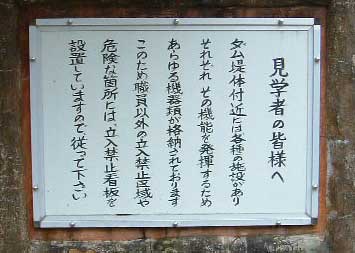 見学者の皆様へ
ダム堤体付近には各種の施設があり
それぞれその機能を発揮するため
あらゆる機器類が格納されております
このため職員以外の立入禁止区域や
危険な箇所には、立入禁止看板を
設置していますので、従って下さい